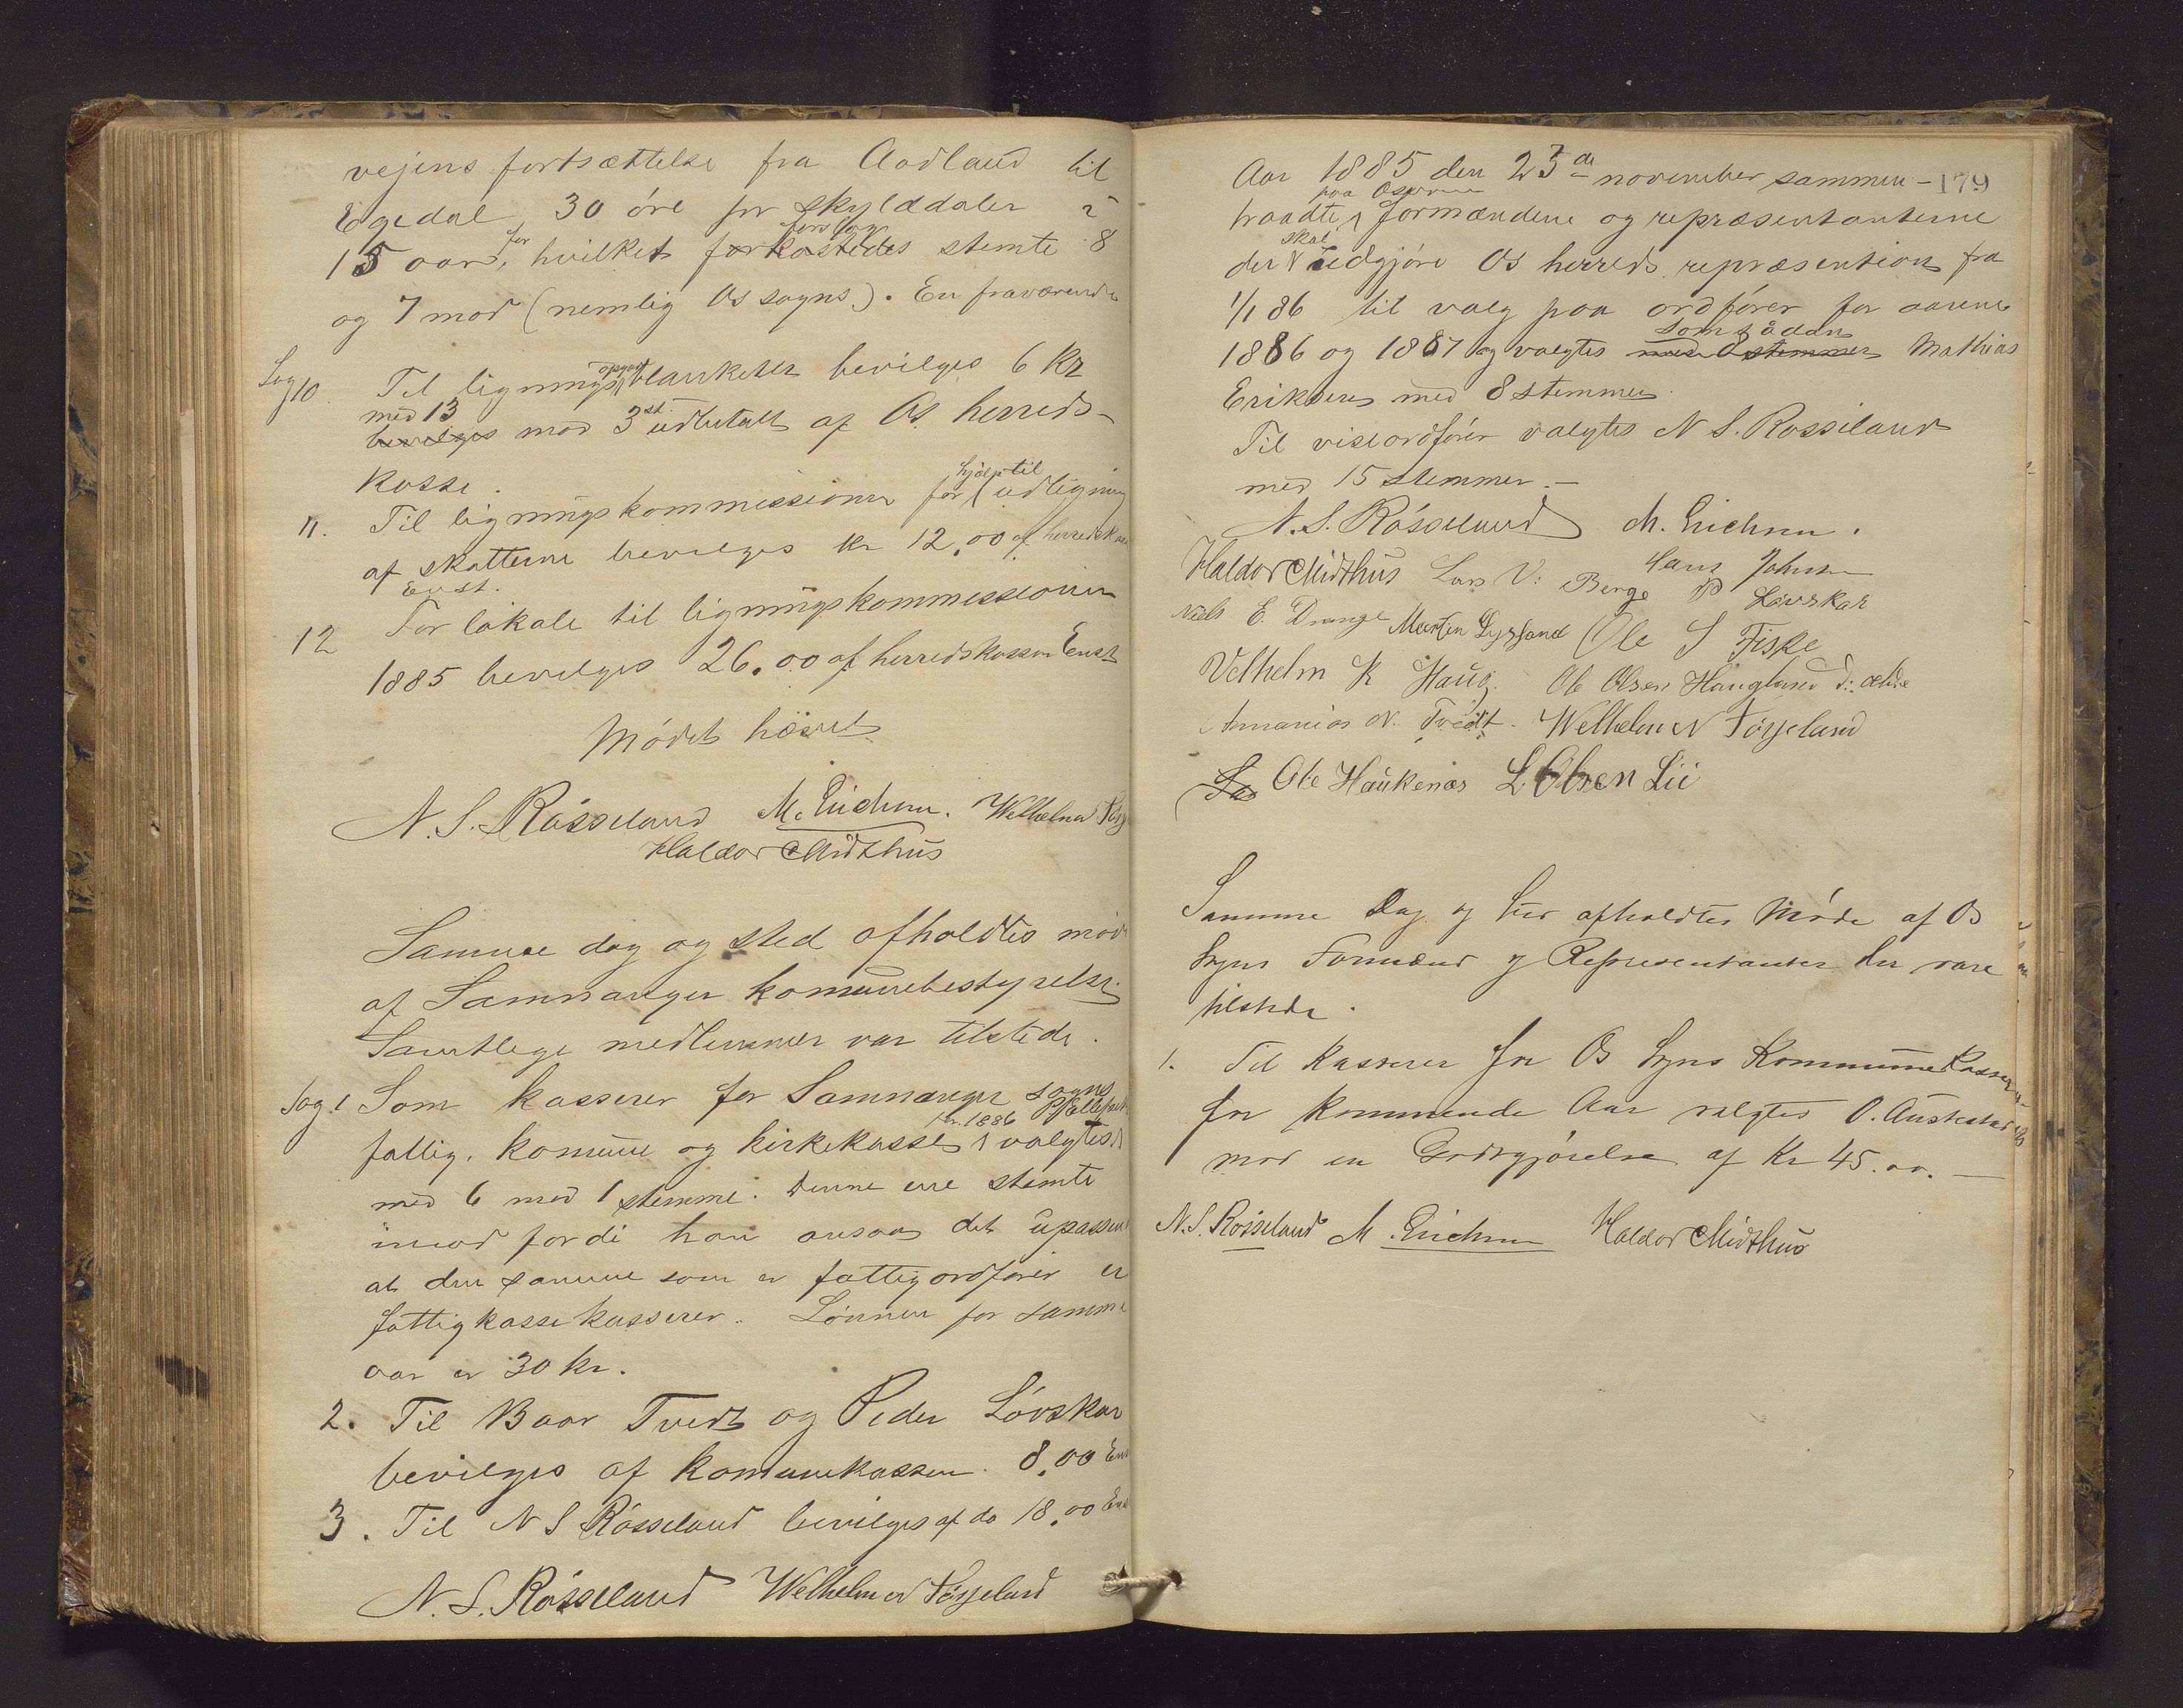 vejens fortsættelse fra Aadland til
Egedal 30 öre pr skylddaler i
15 aar, for hvilket forslag stemte 8
og 7 mod (nemlig Os sogns). En fraværende
Sag 10. Til lignings opgave blanketer bevilges 6 Kr
med 13
bevilges mod 3 st udbetalt af Os herreds-
kasse.
11. Til ligningskommissionen for hjælp til udligning
af skatterne bevilges kr 12,00 af herredskassen
Enst.
12 For lokale til ligningskommissionen
1885 bevilges 26,00 af herredskassen Enst
Mödet hævet
N. S. Rösseland M. Erichsen. Welhelm N
Haldor Midthus
Samme dag og sted afholdtes möde
af Samnanger komunebestyrelse.
Samtlege medlemmer var tilstede.
Sag 1 Som kasserer for Samnanger sogns
fattig, komune og kirkekasse for 1886 valgtes
med 6 mod 1 stemme. Denne ene stemte
imod fordi han ansaa det upassende
at den samme som er fattigordförer er
fattigkassekasserer. Lönnen for samme
aar er 30 kr.
2. Til Baar Tvedt og Peder Lövskar
bevilges af komunekassen 8,00 Enst
3. Til N S Rösseland bevilges af do 18,00 Enst
N. S. Rösseland Welhelm N Törjeland
179
Aar 1885 den 23de november sammen-
traadte paa Osören formændene og repræsentanterne
der skal udgjöre Os herreds repræsention fra
1/1 86 til valg paa ordförer for aarene
1886 og 1887 og valgtes med 8 stemmer som sådan Mathias
Eriksen med 8 stemmer.
Til viseordförer valgtes N S. Rosseland
med 15 stemmer.-
N. S. Rösseland M. Erichsen.
Haldor Midthus Lars V. Berge Hans Johnsen
Niels E. Drange Martin Lysfand Ole S Fiske P Lövskar
Velhelm K Haug. Ole Olsen Haugland d: ældre
Annanias N. Tvedt. Welhelm N Törjeland
Las Ole Haukenæs L. Olsen Lii
Samme Dag og Sted afholdtes Möde af Os
Sogns Formænd og Representanter der vare
tilstede.
1. Til Kasserer for Os Sogns Kommunekasse
for kommende Aar valgtes O. Austestad
mod en Godtgjörelse af Kr 45.00.
N. S. Rösseland M. Erichsen Haldor Midthus